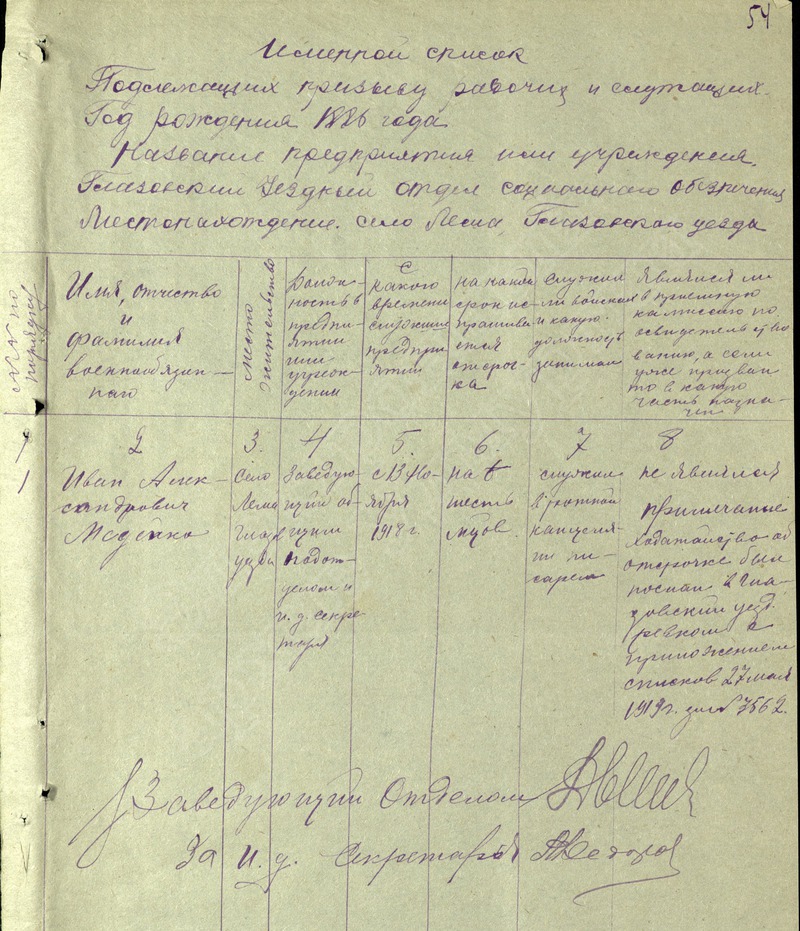 54
Именной список
Подлежащих призыву рабочих и служащих.
Год рождения 1886 года
Название предприятия или учреждения.
Глазовский Уездный отдел социального обезпечения
Местонахождение. село Лема, Глазовского уезда
№№ по порядку
Имя, отчество
и
фамилия
военнообязан-
наго
Место
жительство
Долж-
ность в
предпри-
ятии
или
учреж-
дении
С
какого
времени
служит в
предпри
ятии
на какой
срок ис-
прашива
ется
отсроч-
ка
служил
ли в войсках
и какую
должность
занимал
Являлся ли
в приемную
комиссию по
освидетельство
ванию, а если
уже призван
то в какую
часть назна-
чен
1
2
3.
4
5.
6.
7
8
1
Иван Алек-
сандрович
село
Лема
Глаз
уезда
Заведую-
щий об-
щим
подот-
делом и
и. д. секре
таря
с 13 но-
ября
1918 г.
на 6
шесть
м-цов.
служил
в ротной
канцеля-
рии пи-
сарем
не являлся
примечание
ходатайство об
отсрочке был
послан в Гла-
зовский уезд.
ревком с
приложением
списков 27 мая
1919 г. за № 7562.
Заведующий Отделом
За И. д. Секретаря